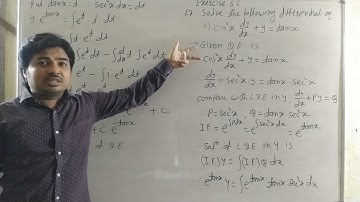 Put tanx = t ∴ sec²x dx = dt
y e^tanx = ∫ e^t t dt
∫ t e^t dt
∫ e^t dt - ∫ d/dt t ∫ e^t dt
e^t - ∫ 1 e^t dt
e^t + C
+ C · e^tanx
of D.E
Exercise 6.5
Solve the following differential eqⁿ
cos²x dy/dx + y = tanx
→ Given D.E is
cos²x dy/dx + y = tanx
∴ dy/dx + sec²x y = tanx · sec²x
Compare with L.D.E in y, dy/dx + Py = Q
P = sec²x Q = tanx sec²x
IF = e^∫Pdx = e^∫sec²x dx = e^tanx
∴ Solⁿ of L.D.E in y is
(IF)y = ∫(IF) Q dx
∴ e^tanx y = ∫ e^tanx tanx sec²x dx